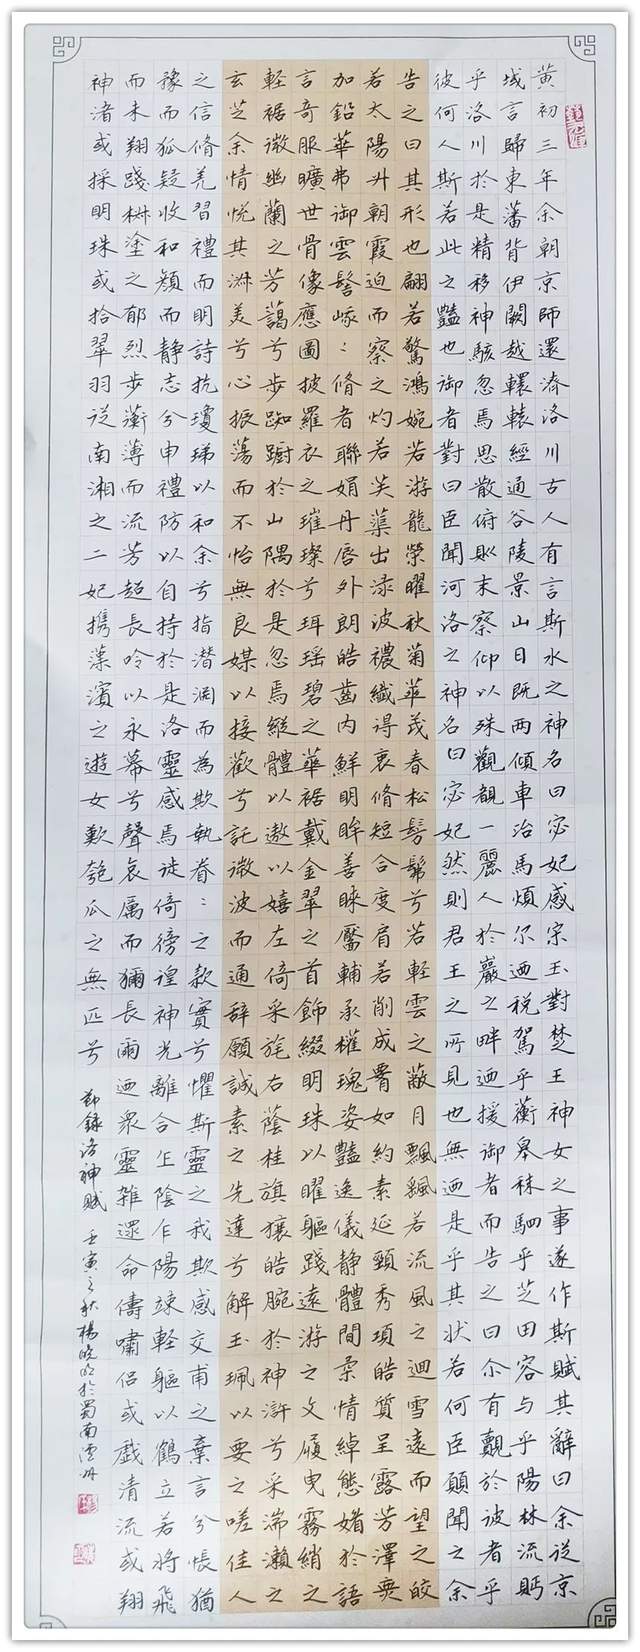 黄初三年余朝京師還濟洛川古人有言斯水之神名曰宓妃感宋玉對楚王神女之事遂作斯賦其辭曰余從京
域言歸東藩背伊闕越轘轅經通谷陵景山日既西傾車殆馬煩尔迺税駕乎蘅皋秣駟乎芝田容与乎陽林流眄
乎洛川於是精移神駭忽焉思散俯則未察仰以殊觀覩一麗人於巖之畔迺援御者而告之曰尒有覿於彼者乎
彼何人斯若此之豔也御者對曰臣聞河洛之神名曰宓妃然則君王之所見也無迺是乎其狀若何臣願聞之余
告之曰其形也翩若驚鴻婉若游龍榮曜秋菊華茂春松髣髴兮若輕雲之蔽月飄飖若流風之迴雪遠而望之皎
若太陽升朝霞迫而察之灼若芙蕖出渌波襛纖得衷脩短合度肩若削成如約素延頸秀項皓質呈露芳澤無
加鉛華弗御雲髻峨〻脩眉聯娟丹唇外朗皓齒内鮮明眸善睞靨輔承權瑰姿豔逸儀静體閒柔情綽態媚於語
言奇服曠世骨像應圖披羅衣之璀璨兮珥瑶碧之華裾戴金翠之首飾綴明珠以曜軀踐遠游之文履曳霧綃之
輕裾微幽蘭之芳藹兮步踟躕於山隅於是忽焉縱體以遨以嬉左倚采旄右蔭桂旗攘皓腕於神滸兮采湍瀨之
玄芝余情悦其淑美兮心振蕩而不怡無良媒以接歡兮託微波而通辭願誠素之先達兮解玉珮以要之嗟佳人
之信脩羌習禮而明詩抗瓊珶以和余兮指潜淵而為欺執眷〻之款實兮懼斯靈之我欺感交甫之棄言兮悵猶
豫而狐疑收和顔而静志兮申禮防以自持於是洛靈感焉徙倚徬徨神光離合乍陰乍陽竦輕軀以鶴立若將飛
而未翔踐椒塗之郁烈步蘅薄而流芳超長吟以永慕兮聲哀厲而彌長爾迺眾靈雜遝命儔嘯侣或戲清流或翔
神渚或採明珠或拾翠羽從南湘之二妃携漢濱之遊女歎匏瓜之無匹兮
節録洛神賦 壬寅之秋楊曉明於蜀南瀘州